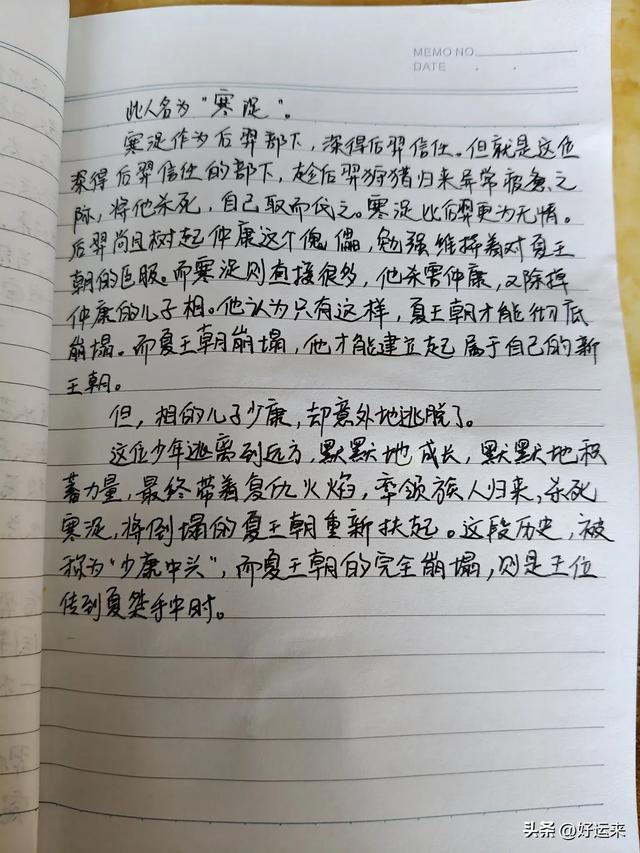 MEMO NO.
DATE
此人名为“寒浞”。
寒浞作为后羿部下，深得后羿信任。但就是这位
深得后羿信任的部下，趁后羿狩猎归来异常疲惫之
际，将他杀死，自己取而代之。寒浞比后羿更为无情。
后羿尚且树起仲康这个傀儡，勉强维持着对夏王
朝的臣服。而寒浞则直接很多，他杀害仲康，又除掉
仲康的儿子相。他认为只有这样，夏王朝才能彻底
崩塌。而夏王朝崩塌，他才能建立起属于自己的新
王朝。
但，相的儿子少康，却意外地逃脱了。
这位少年逃离到远方，默默地成长，默默地积
蓄力量，最终带着复仇火焰，率领族人归来，杀死
寒浞，将倒塌的夏王朝重新扶起。这段历史，被
称为“少康中头”，而夏王朝的完全崩塌，则是王位
传到夏桀手中时。
头条 @好运来